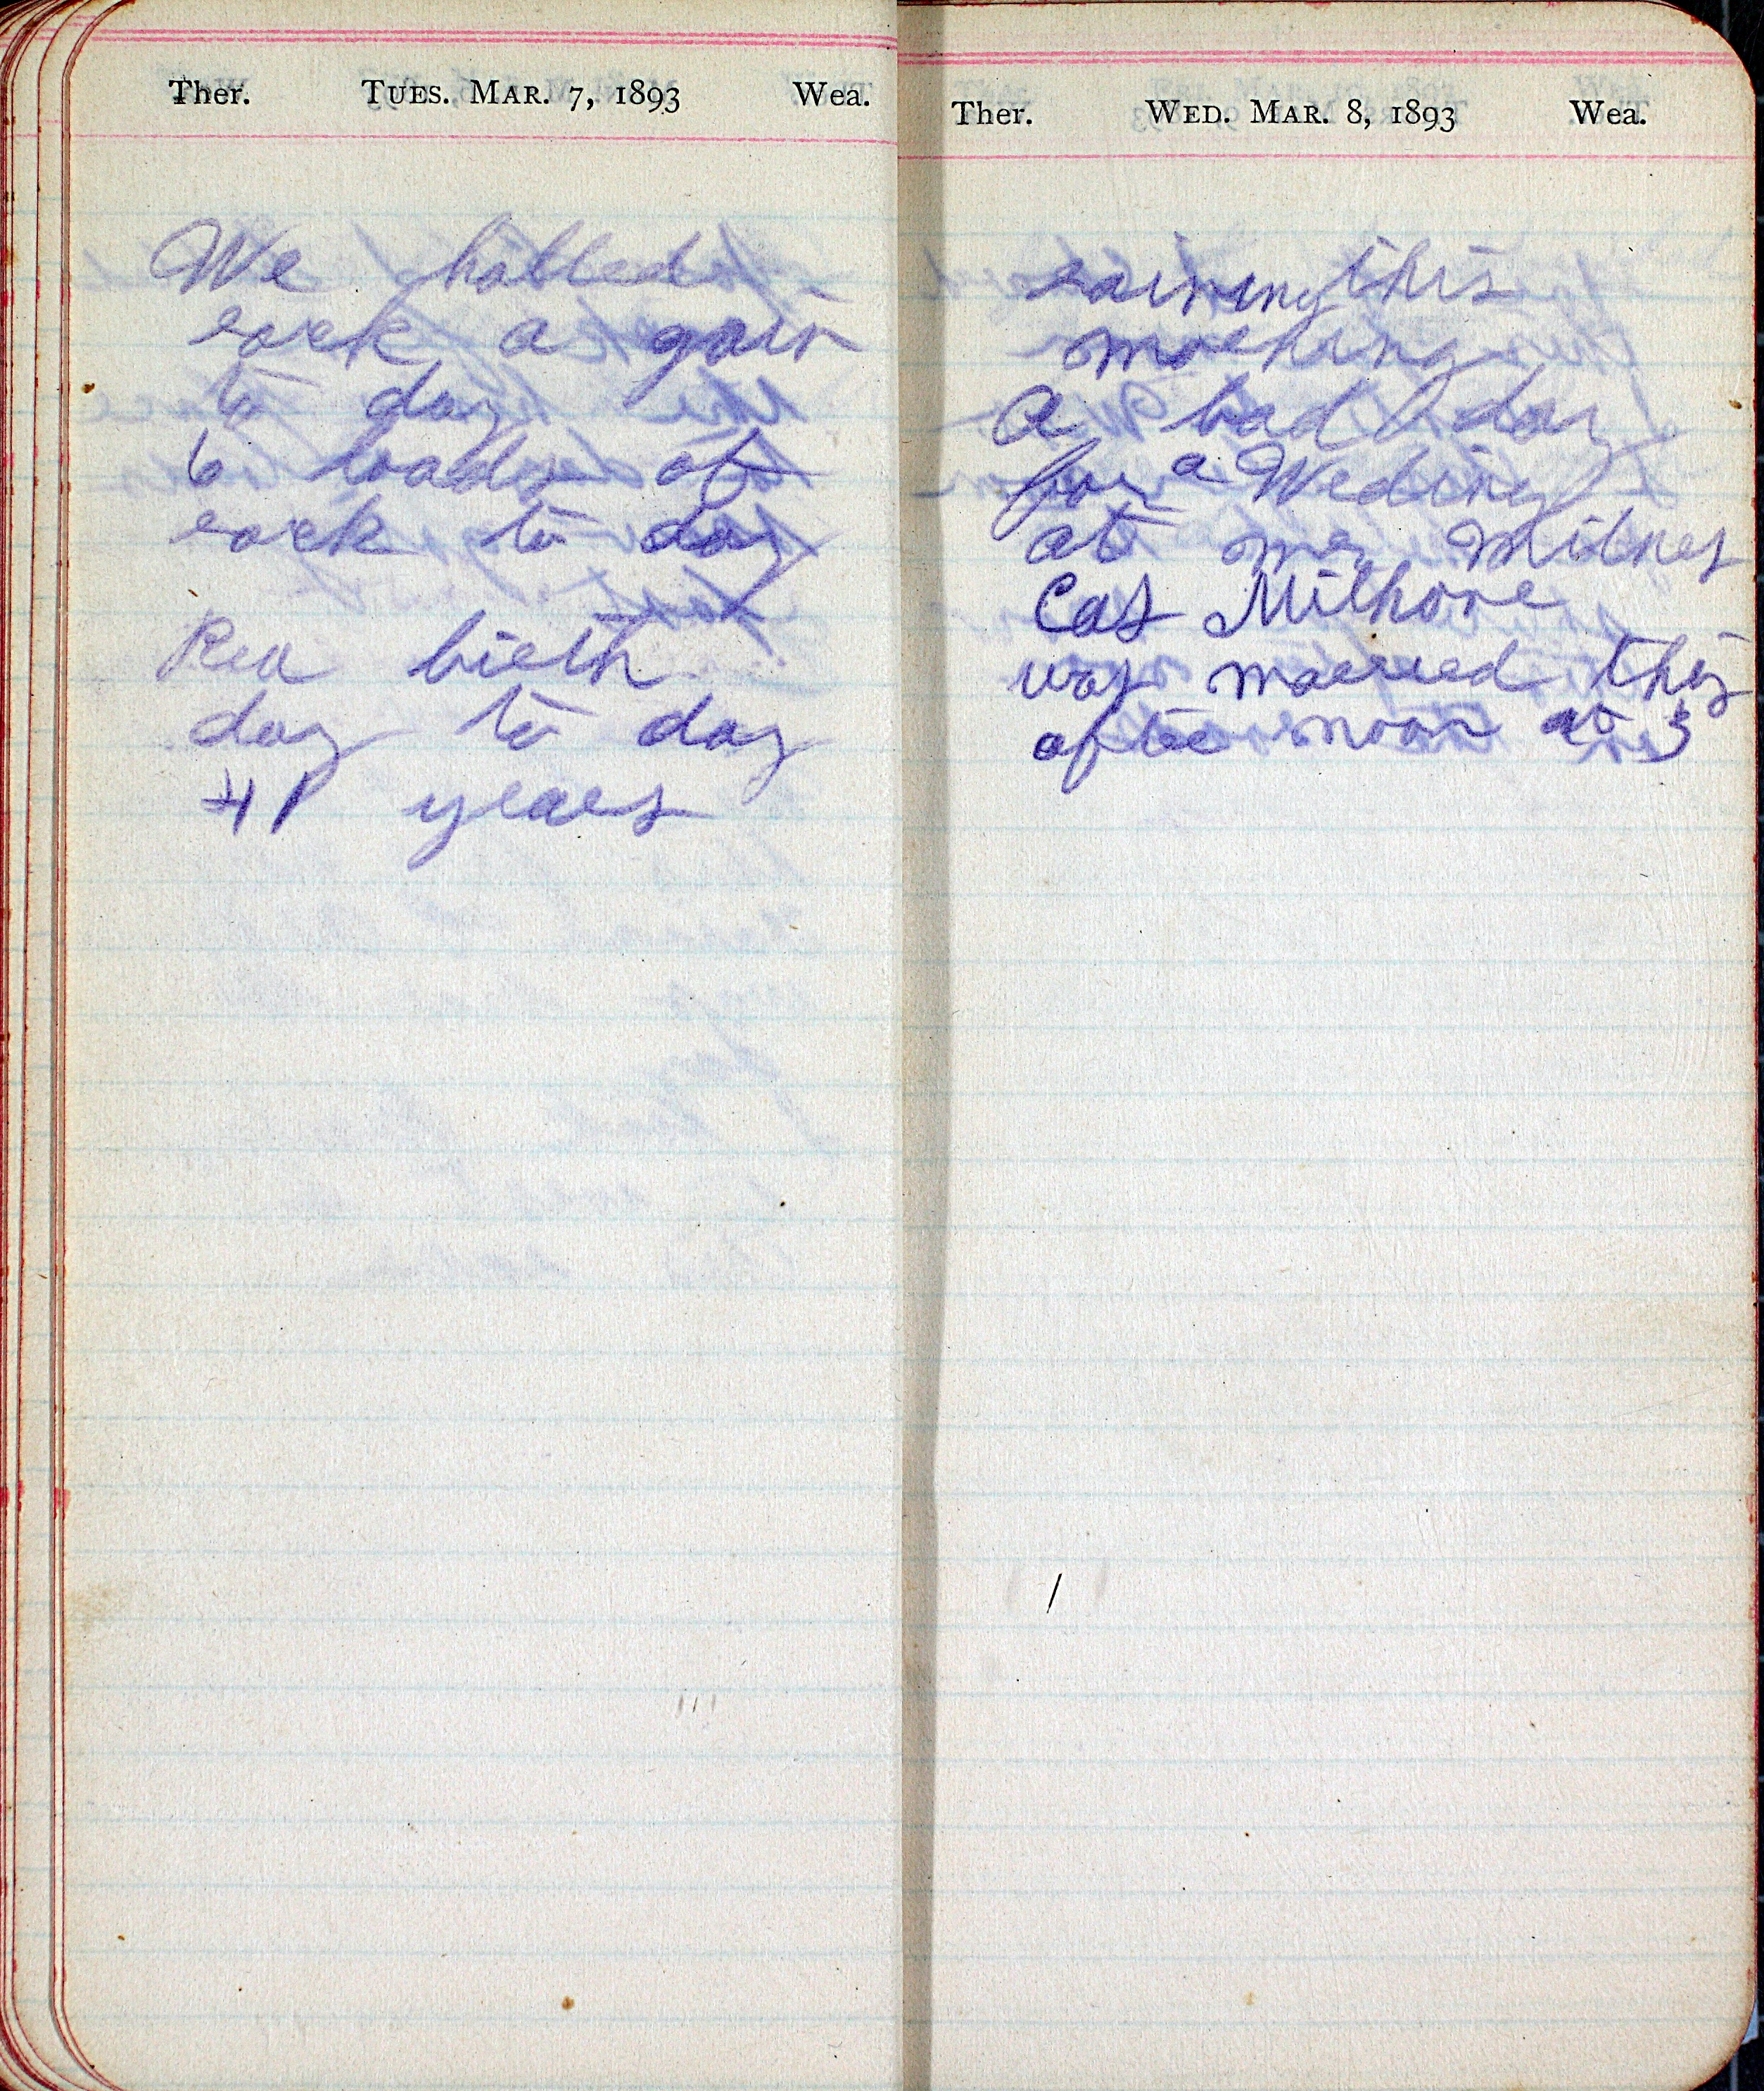 Ther. Tues. Mar. 7, 1893 Wea.
We halled
rock a gain
to day
6 loads of
rock to day
Rea birth
day to day
41 years
Ther. Wed. Mar. 8, 1893 Wea.
raining this
morning
A bad day
for a Weding
at mr Milnes
Cas Milhone
was marred this
after noon at 3